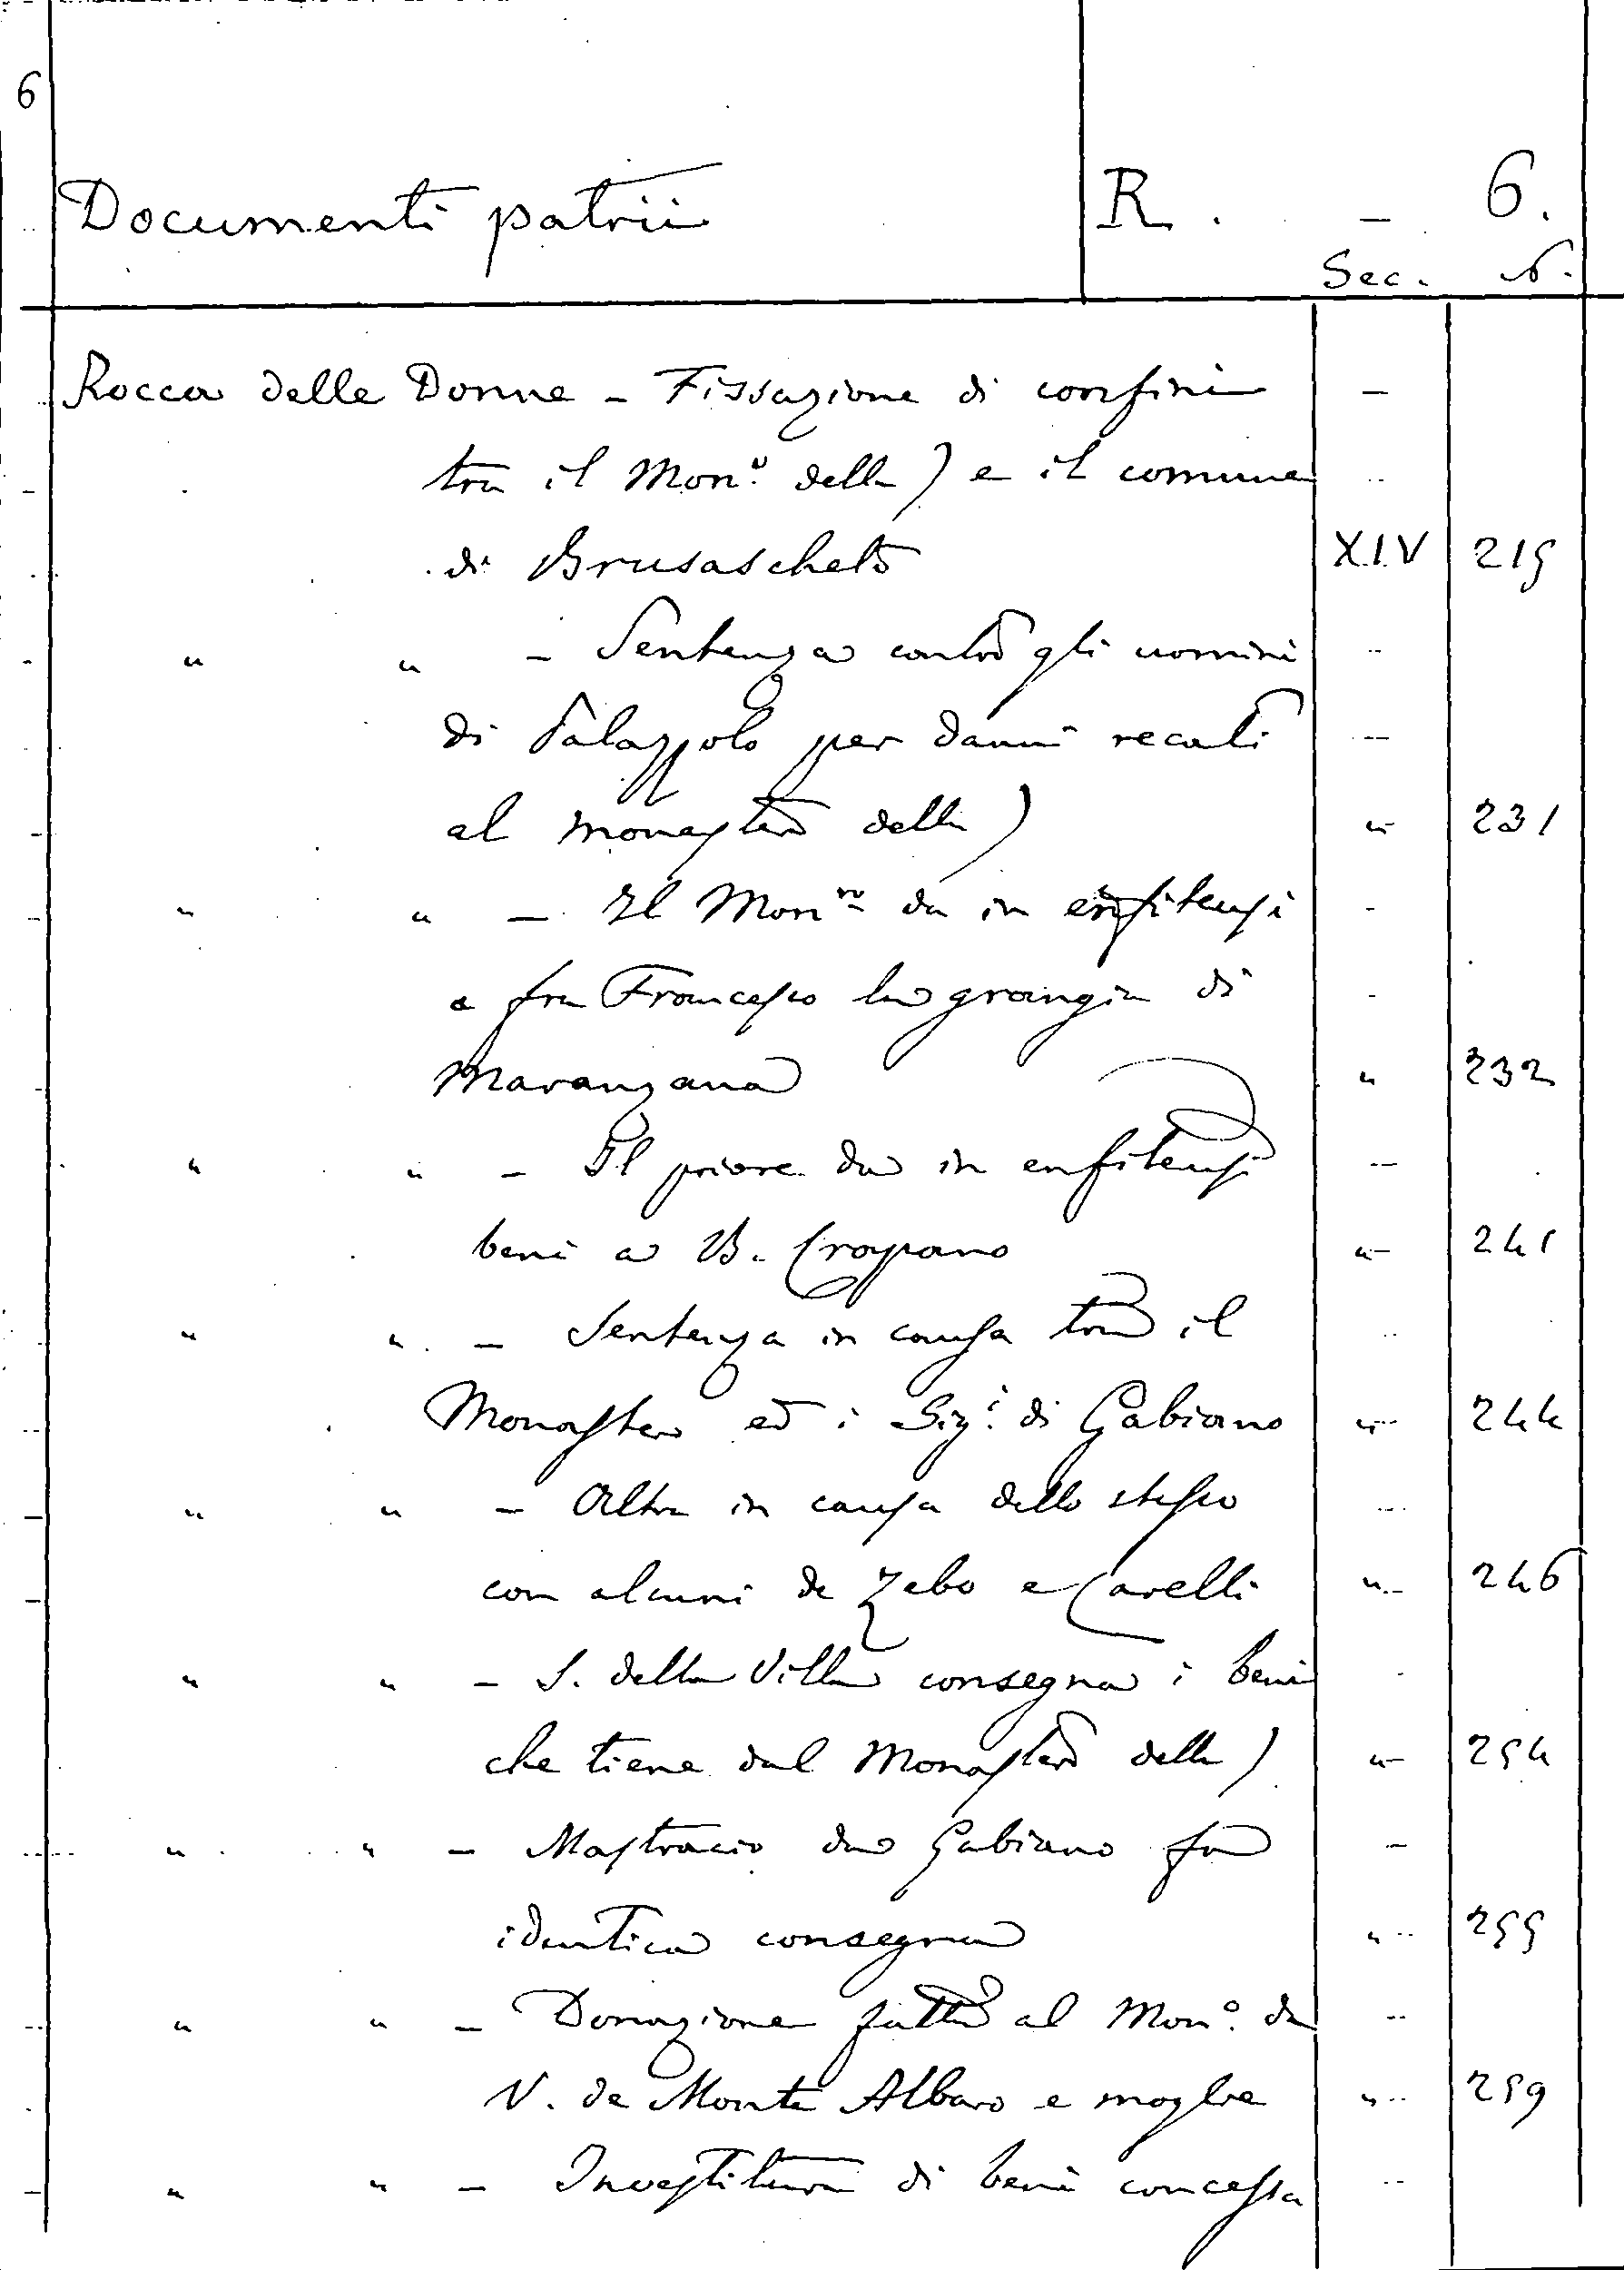 6
Documenti patrii R. - 6.
Sec. N.
Rocca delle Donne - Fissazione di confini
tra il Mon.º della ) e il comune
di Brusascheto XIV 215
" " - Sentenza contro gli uomini
di Palazzolo per danni recati
al monastero della ) " 231
" " - Il Mon.ro da in enfiteusi
a fra Francesco la grangia di
Maranzana " 232
" " - Il priore da in enfiteusi
beni a B. Cropano " 241
" " - Sentenza in causa tra il
Monastero ed i Sig.i di Gabiano " 244
" " - Altra in causa dello stesso
con alcuni de Zebo e Carelli " 246
" " - S. della Villa consegna i beni
che tiene dal Monastero della ) " 254
" " - Mastracio da Gabiano fa
identica consegna " 255
" " - Donazione fatta al Mon.º da
V. de Monte Albaro e moglie " 259
" " - Investitura di beni concessa